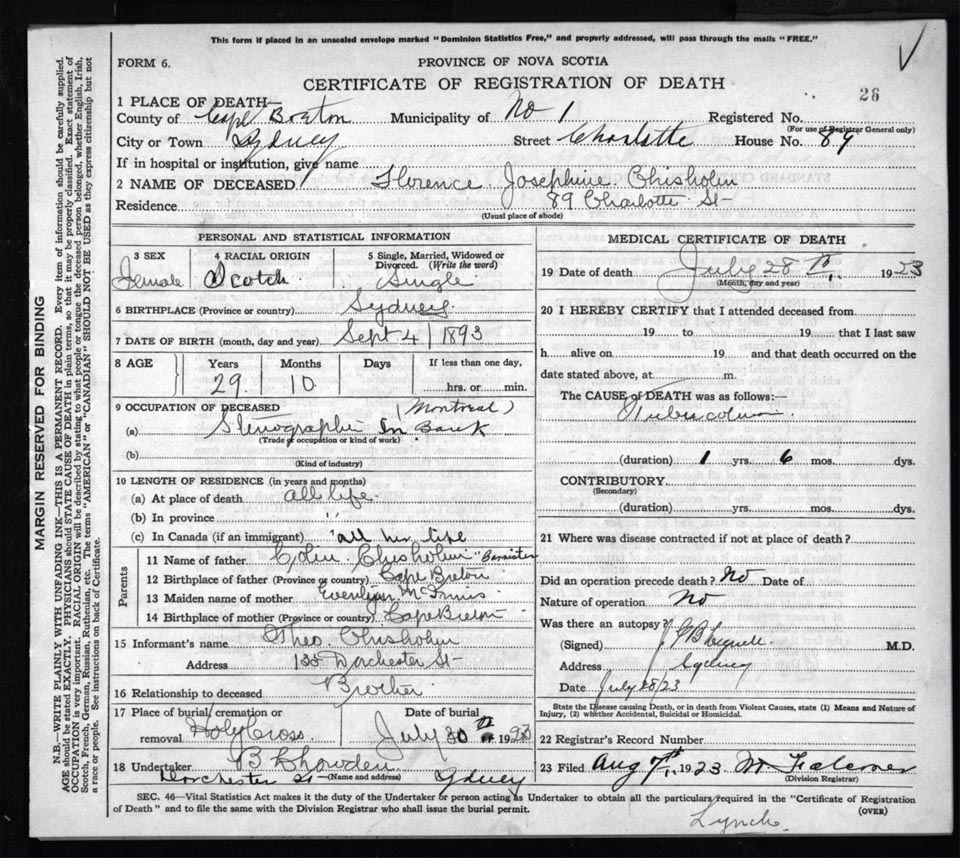 This form if placed in an unsealed envelope marked "Dominion Statistics Free," and properly addressed, will pass through the mails "FREE."
FORM 6.
PROVINCE OF NOVA SCOTIA
CERTIFICATE OF REGISTRATION OF DEATH
26
1 PLACE OF DEATH—
County of Cape Breton Municipality of No 1 Registered No.
(For use of Registrar General only)
City or Town Sydney Street Charlotte House No. 89
If in hospital or institution, give name
2 NAME OF DECEASED Florence Josephine Chisholm
Residence 89 Charlotte St
(Usual place of abode)
PERSONAL AND STATISTICAL INFORMATION
3 SEX 4 RACIAL ORIGIN 5 Single, Married, Widowed or Divorced. (Write the word)
Female Scotch Single
6 BIRTHPLACE (Province or country) Sydney
7 DATE OF BIRTH (month, day and year) Sept 4 1893
8 AGE Years Months Days If less than one day,
29 10 hrs. or min.
9 OCCUPATION OF DECEASED (Montreal)
(a) Stenographer In Bank
(Trade or occupation or kind of work)
(b)
(Kind of industry)
10 LENGTH OF RESIDENCE (in years and months)
(a) At place of death all life
(b) In province " "
(c) In Canada (if an immigrant) all her life
Parents
11 Name of father Colin Chisholm "Barrister
12 Birthplace of father (Province or country) Cape Breton
13 Maiden name of mother McInnis
14 Birthplace of mother (Province or country) Cape Breton
15 Informant's name Theo Chisholm
Address Dorchester St
16 Relationship to deceased Brother
17 Place of burial, cremation or removal Holy Cross Date of burial July 30th 1923
18 Undertaker
Dorchester St (Name and address) Sydney
MEDICAL CERTIFICATE OF DEATH
19 Date of death July 28th, 1923
(Month, day and year)
20 I HEREBY CERTIFY that I attended deceased from
19 to 19 that I last saw
h alive on 19 and that death occurred on
date stated above, at m.
The CAUSE OF DEATH was as follows:—
(duration) 1 yrs. 6 mos. dys.
CONTRIBUTORY
(Secondary)
(duration) yrs. mos. dys.
21 Where was disease contracted if not at place of death?
Did an operation precede death? No Date of
Nature of operation No
Was there an autopsy?
(Signed) M.D.
Address Sydney
Date July 28/23
State the Disease causing Death, or in death from Violent Causes, state (1) Means and Nature of
Injury, (2) whether Accidental, Suicidal or Homicidal.
22 Registrar's Record Number
23 Filed Aug 7th, 1923
(Division Registrar)
SEC. 46—Vital Statistics Act makes it the duty of the Undertaker or person acting as Undertaker to obtain all the particulars required in the "Certificate of Registration
of Death" and to file the same with the Division Registrar who shall issue the burial permit.
(OVER)
Lynch.
MARGIN RESERVED FOR BINDING
N.B.—WRITE PLAINLY WITH UNFADING INK—THIS IS A PERMANENT RECORD. Every item of information should be carefully supplied.
AGE should be stated EXACTLY. PHYSICIANS should STATE CAUSE OF DEATH in plain terms, so that it may be properly classified. Exact statement of
OCCUPATION is very important. RACIAL ORIGIN will be described by stating to what people or tongue the deceased person belonged, whether English, Irish,
Scotch, French, German, Russian, Ruthenian, etc. The terms "AMERICAN" or "CANADIAN" SHOULD NOT BE USED as they express citizenship but not
a race or people. See instructions on back of Certificate.